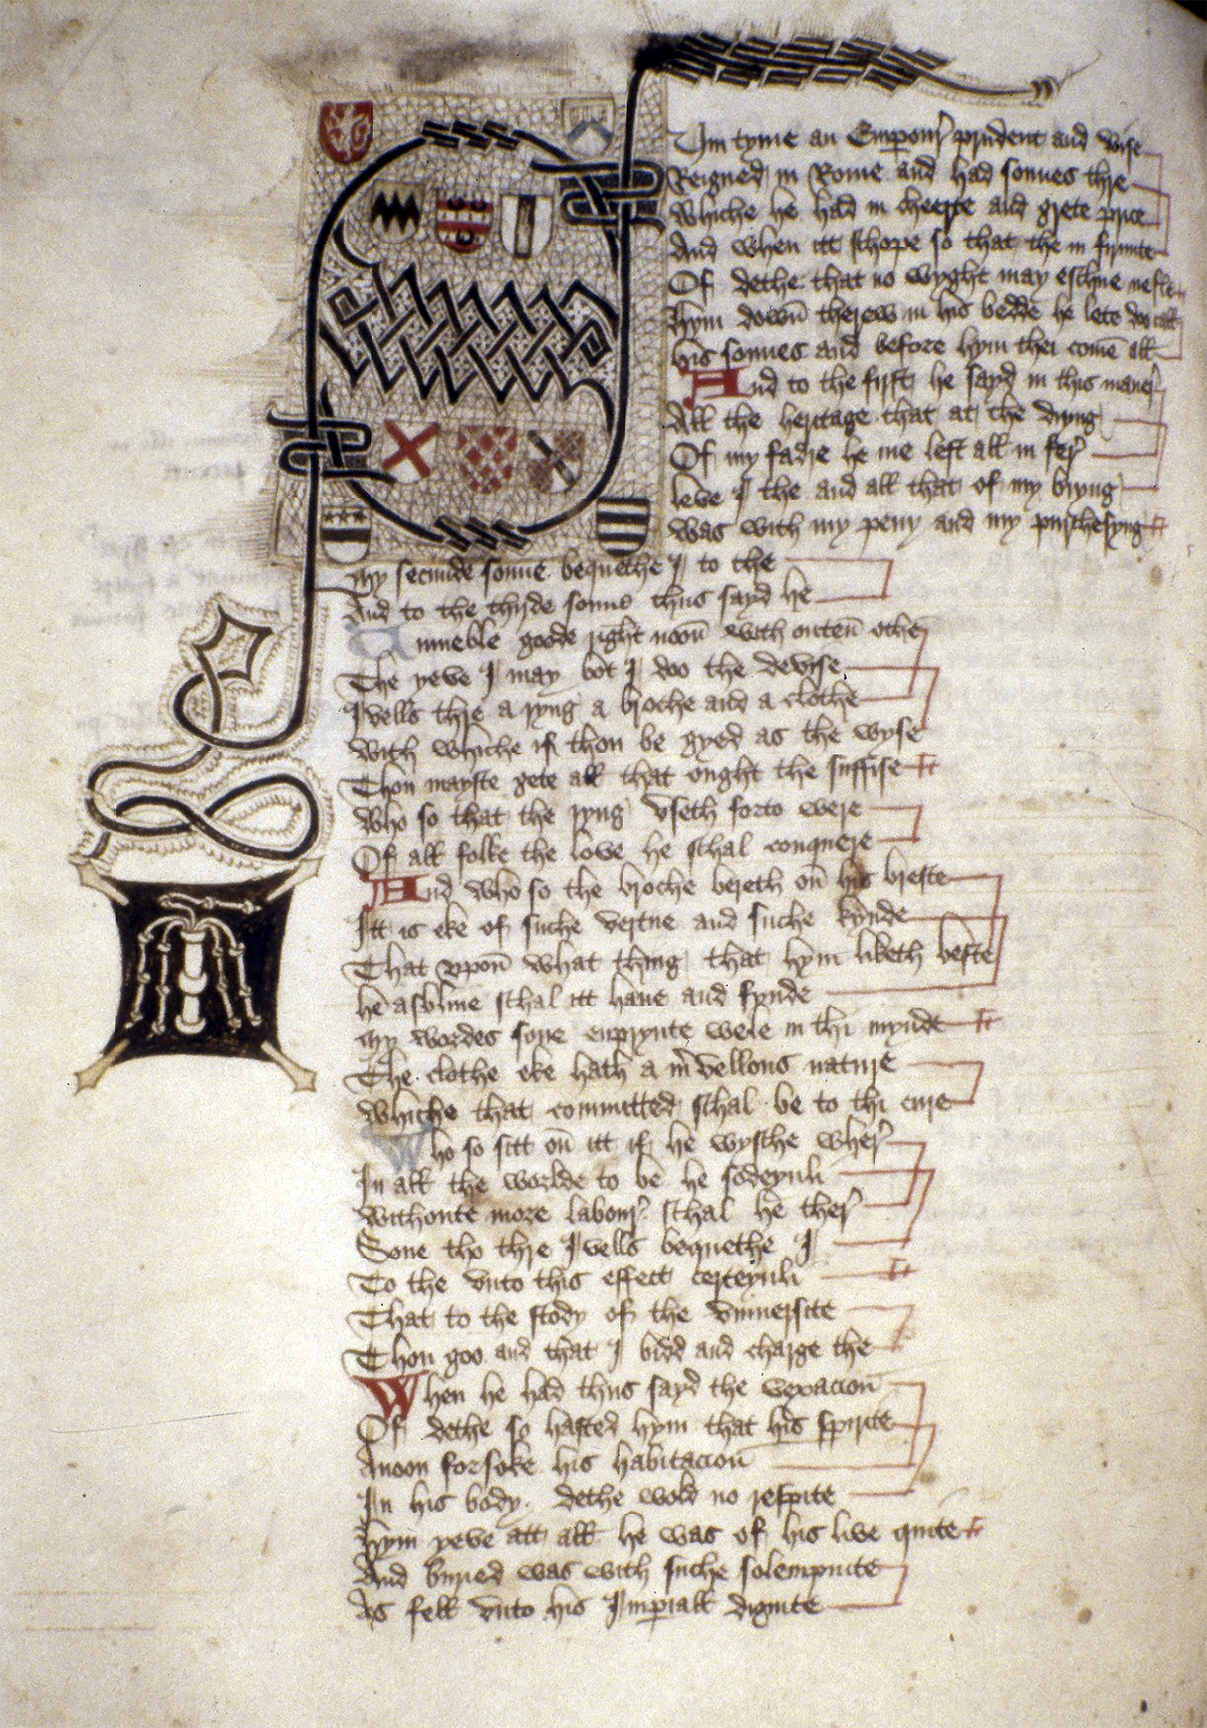 Um tyme an Emperour prudent and wise
Reigned in Rome and had sonnes thre
Whiche he had in cheerte and grete price
And when itt shope so that the infirmite
Of dethe that no wyght may eschue
Hym down therew in his bedde he lete doo call
his sonnes and before hym thei come all
And to the first he sayd in this maner
All the heritage that at the diyng
Of my fadre he me left all in fer
leve I the and all that of my biyng
was with my peny and my purchesyng
My secunde sonne bequethe I to the
And to the thirde sonne thus sayd he
Unmeble goode right noon with outen othe
The yeve I may bot I doo the devise
Ivells thre a ryng a broche and a clothe
With whiche if thou be gyed as the wyse
Thou mayste gete all that ought the suffise
Who so that the ryng useth forto were
Of all folke the love he schal conquere
And who so the broche bereth on his breste
Itt is eke of suche vertue and suche kynde
That upon what thing that hym liketh beste
he as blive schal itt have and fynde
My wordes sone enprynte wele in thi mynde
The clothe eke hath a mervellous nature
Whiche that committed schal be to thi cure
Who so sitt on itt if he wysshe wher
In all the worlde to be he sodeynli
Withoute more labour schal he ther
Sone tho thre Ivells bequethe I
To the unto this effect certeynli
That to the stody of the universite
Thou goo and that I bidd and charge the
When he had thus sayd the vexacion
Of dethe so hasted hym that his spirite
Anoon forsoke his habitacion
In his body dethe wold no respite
Hym yeve att all he was of his live quite
And buried was with suche solempnite
As fell unto his Imperiall dignite